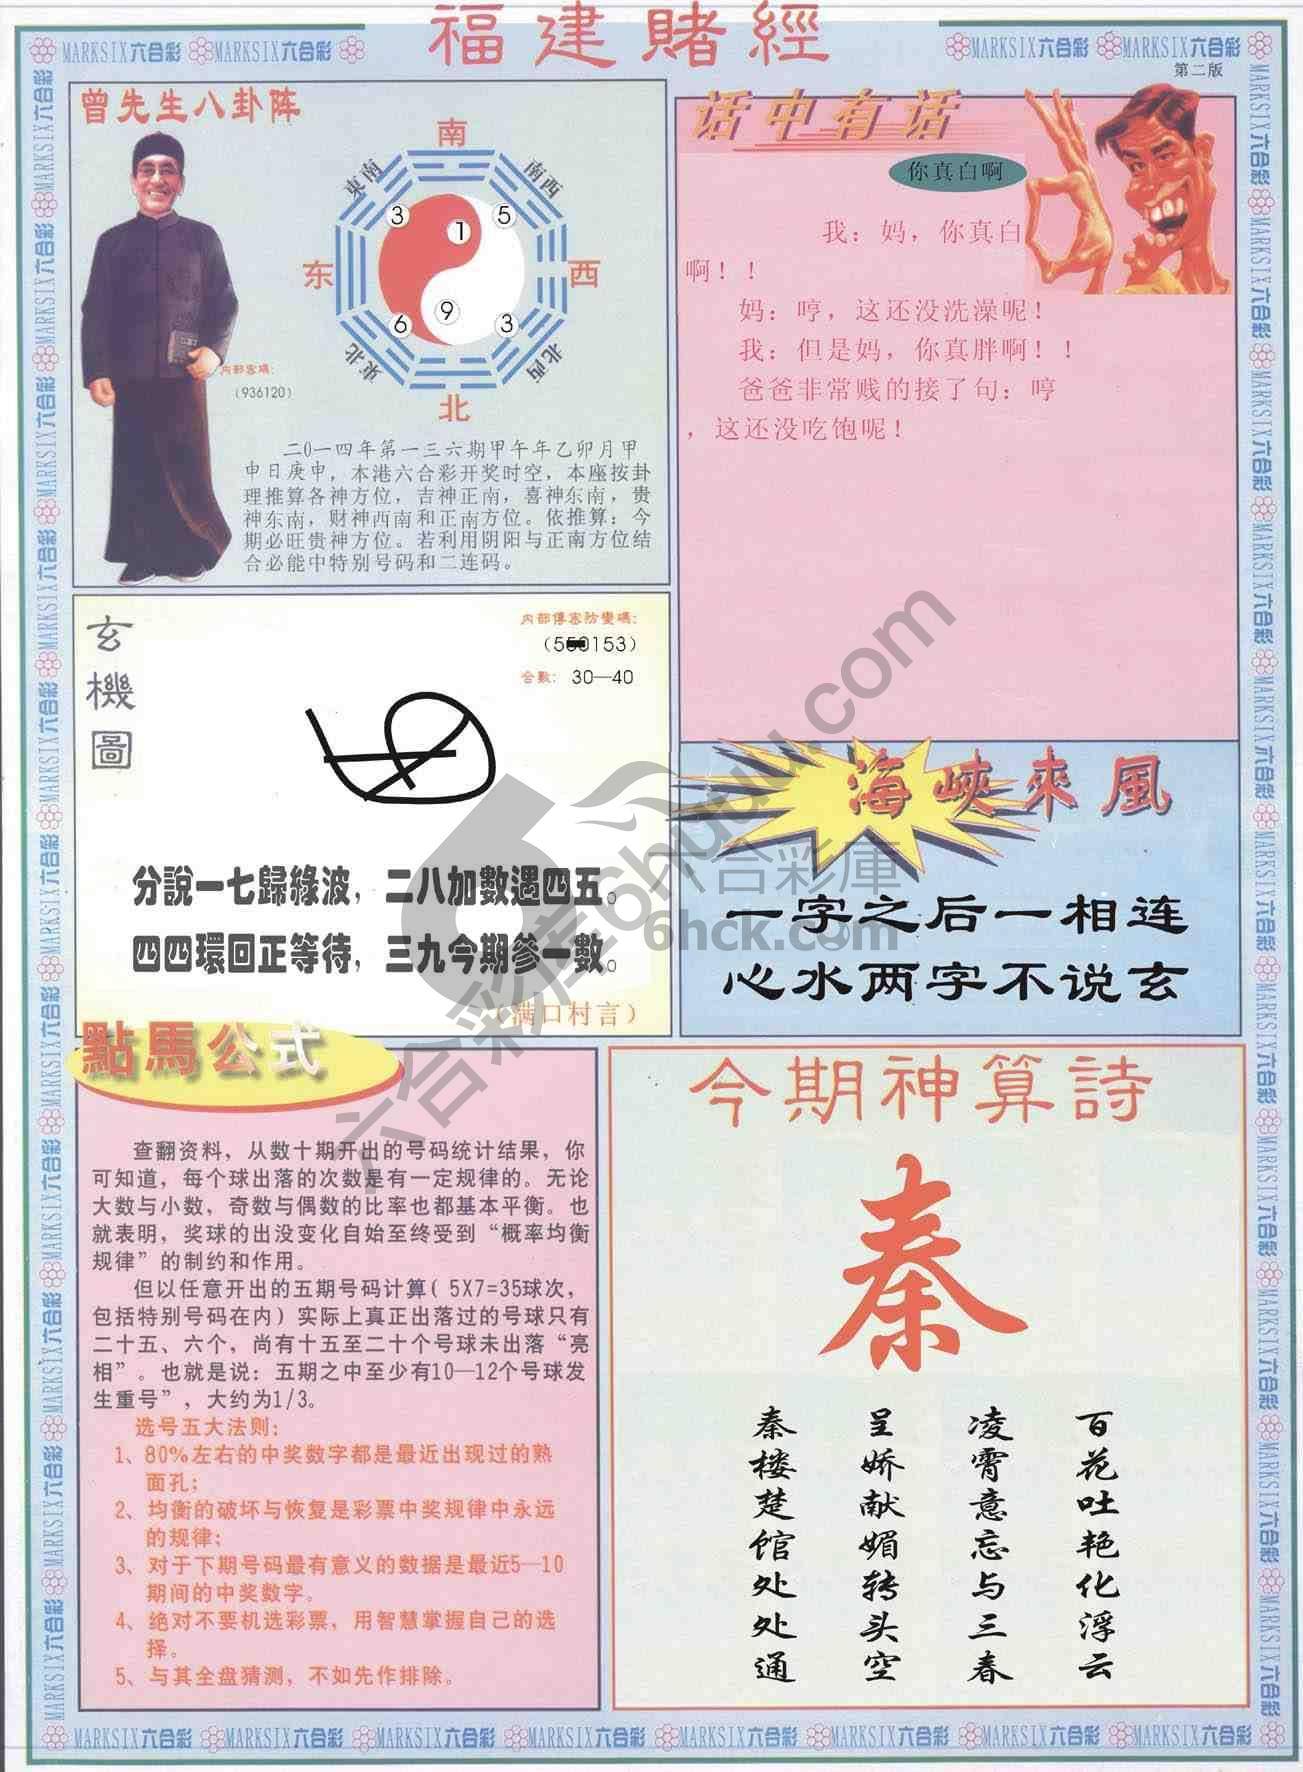 福建賭經
MARKSIX六合彩 MARKSIX六合彩
MARKSIX六合彩 MARKSIX六合彩
第二版
曾先生八卦阵
南
東南
南西
3
1
5
东
西
6
9
3
東北
北西
北
内部密碼：
（936120）
二0一四年第一三六期甲午年乙卯月甲
申日庚申，本港六合彩开奖时空，本座按卦
理推算各神方位，吉神正南，喜神东南，贵
神东南，财神西南和正南方位。依推算：今
期必旺贵神方位。若利用阴阳与正南方位结
合必能中特别号码和二连码。
话中有话
你真白啊
我：妈，你真白
啊！！
妈：哼，这还没洗澡呢！
我：但是妈，你真胖啊！！
爸爸非常贱的接了句：哼
，这还没吃饱呢！
玄機圖
内部傳密防變碼：
合數：30—40
分說一七歸綠波，二八加數遇四五。
四四環回正等待，三九今期參一數。
（满口村言）
海峽來風
一字之后一相连
心水两字不说玄
點馬公式
查翻资料，从数十期开出的号码统计结果，你
可知道，每个球出落的次数是有一定规律的。无论
大数与小数，奇数与偶数的比率也都基本平衡。也
就表明，奖球的出没变化自始至终受到“概率均衡
规律”的制约和作用。
但以任意开出的五期号码计算( 5X7=35球次，
包括特别号码在内）实际上真正出落过的号球只有
二十五、六个，尚有十五至二十个号球未出落“亮
相”。也就是说：五期之中至少有10—12个号球发
生重号”，大约为1/3。
选号五大法则：
1、80%左右的中奖数字都是最近出现过的熟
面孔；
2、均衡的破坏与恢复是彩票中奖规律中永远
的规律；
3、对于下期号码最有意义的数据是最近5—10
期间的中奖数字。
4、绝对不要机选彩票，用智慧掌握自己的选
择。
5、与其全盘猜测，不如先作排除。
今期神算詩
秦
百花吐艳化浮云
凌霄意忘与三春
呈娇献媚转头空
秦楼楚馆处处通
六合彩库 6hkuu.com
六合彩庫
6hck.com
MARKSIX六合彩 MARKSIX六合彩 MARKSIX六合彩 MARKSIX六合彩 MARKSIX六合彩 MARKSIX六合彩 MARKSIX六合彩 MARKSIX六合彩